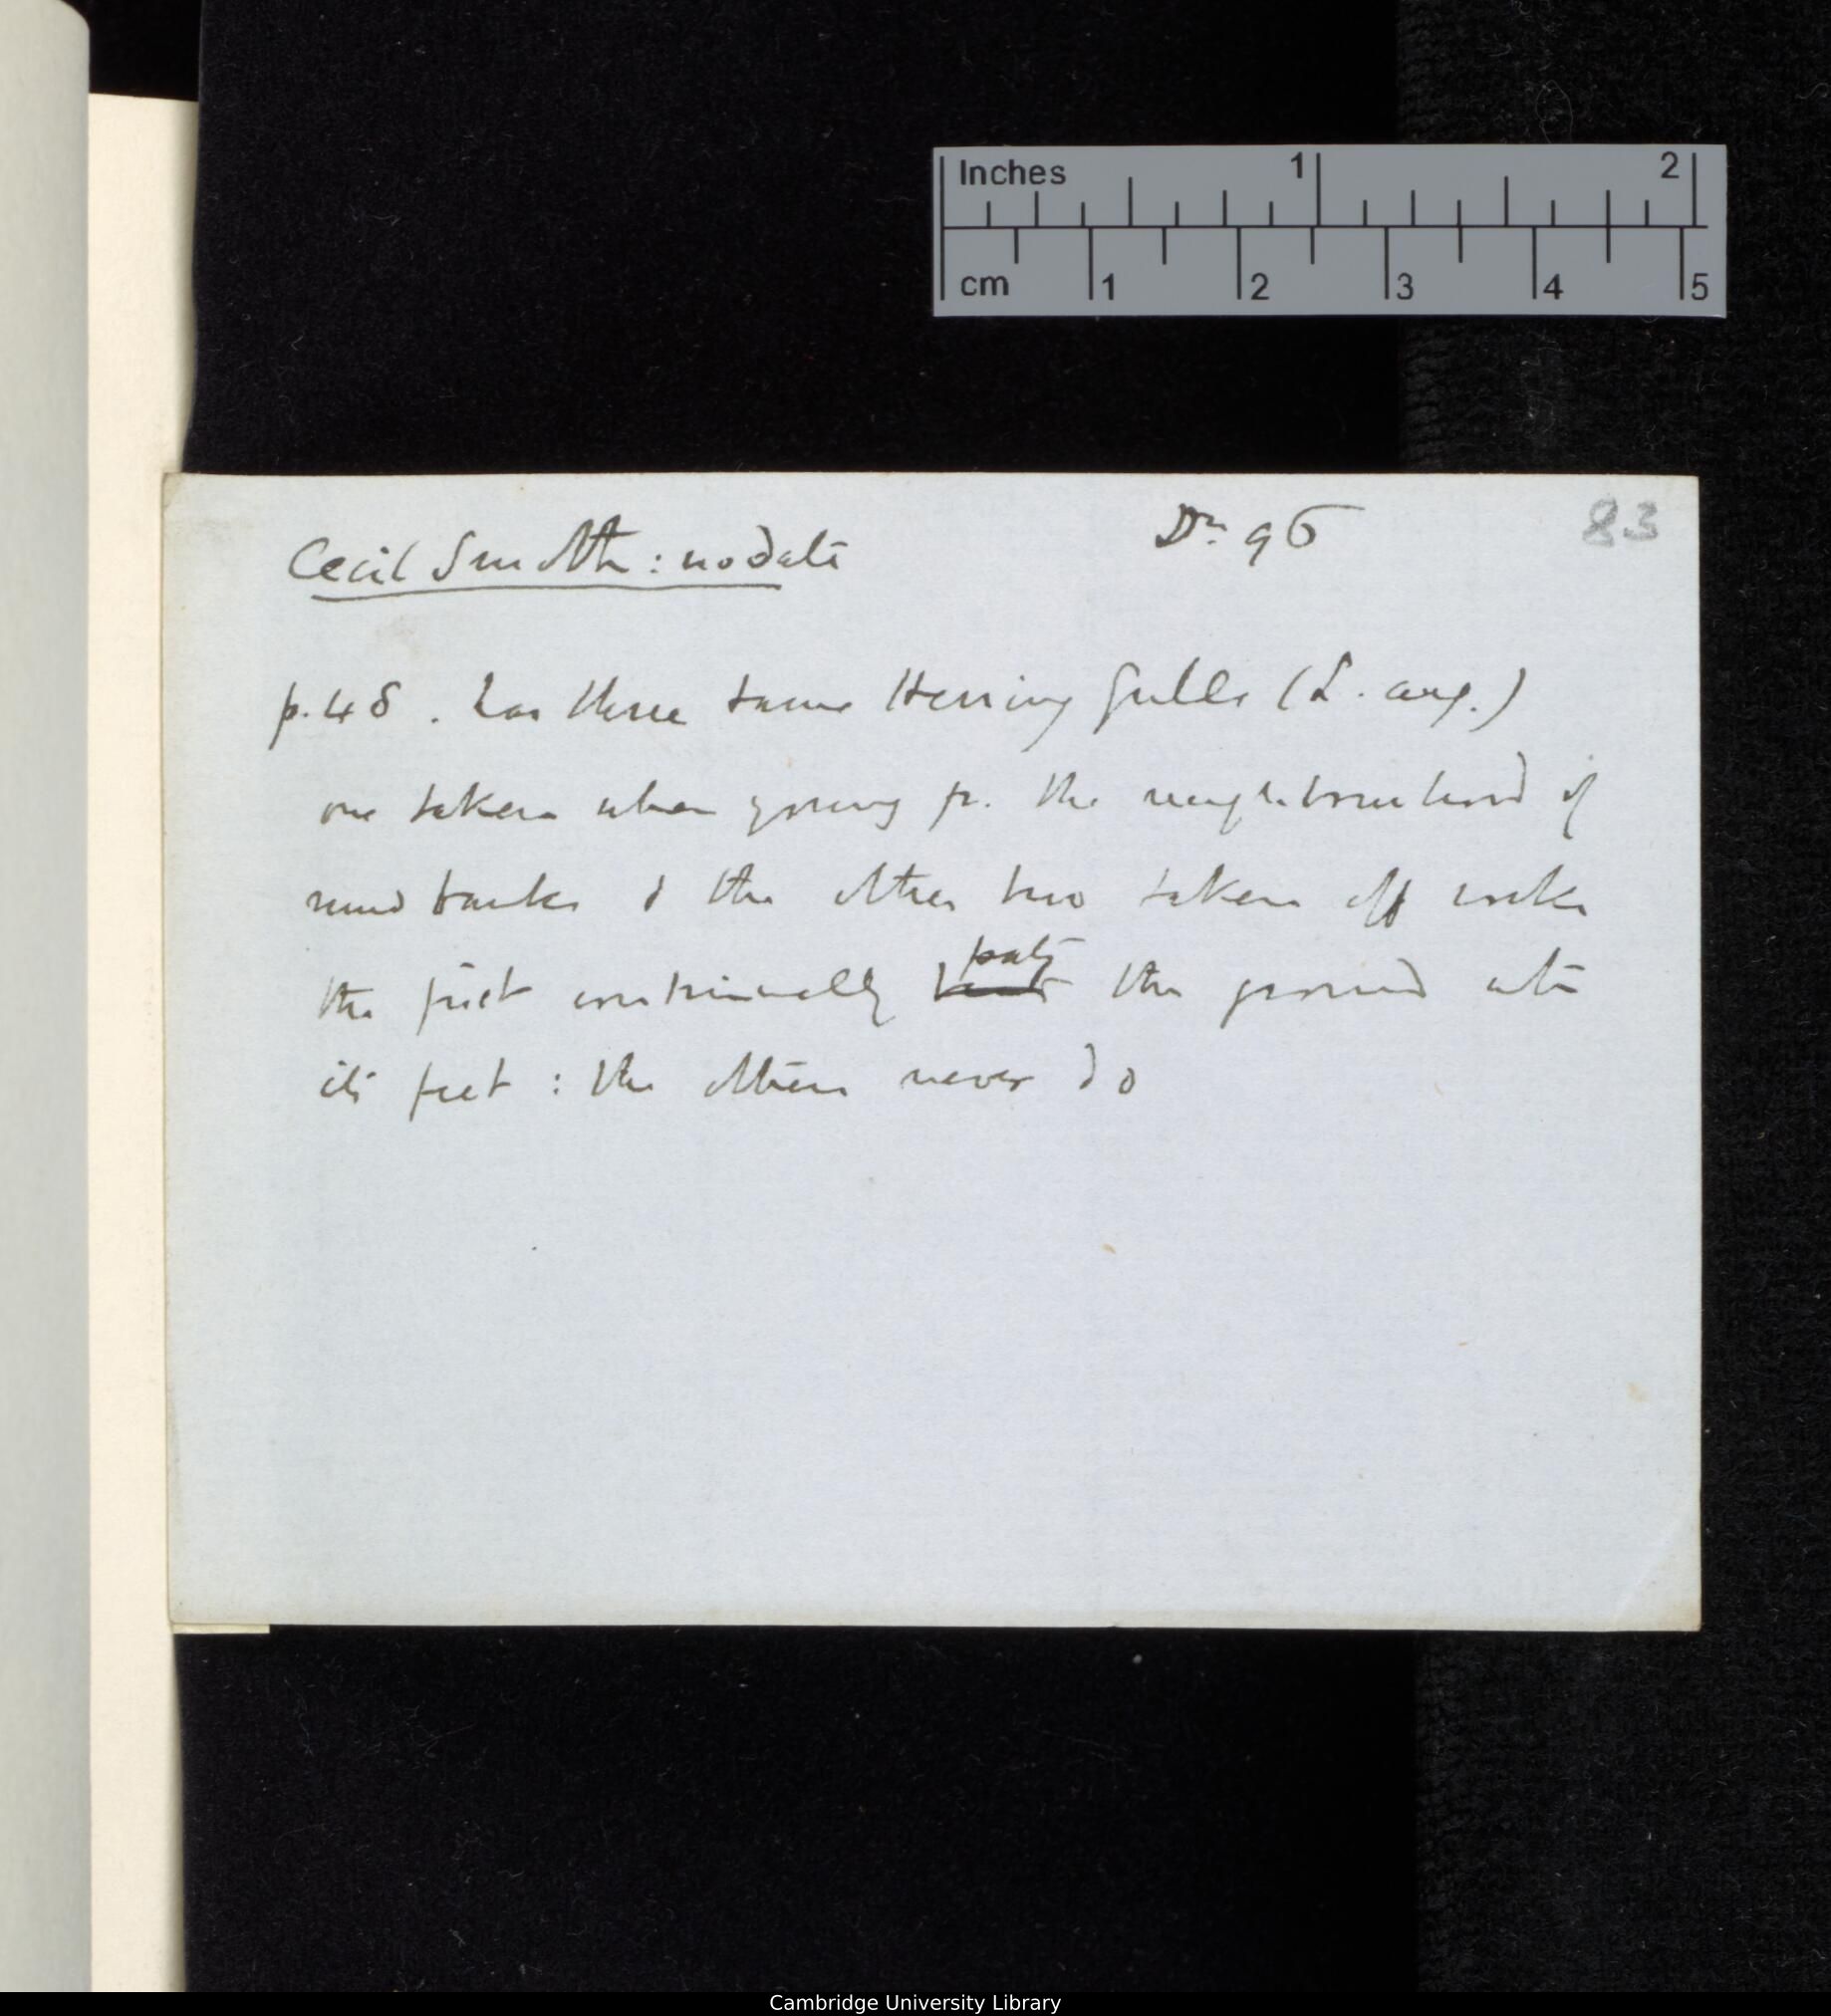 Inches 1 2
cm 1 2 3 4 5
83
Cecil Smith : no date Dr. 96
p. 48. has three tame Herring Gulls (L. arg.)
one taken when young fr. the neighbourhood of
mud banks & the other two taken off rocks
the first continually beats pats the ground with
its feet : the others never do
Cambridge University Library